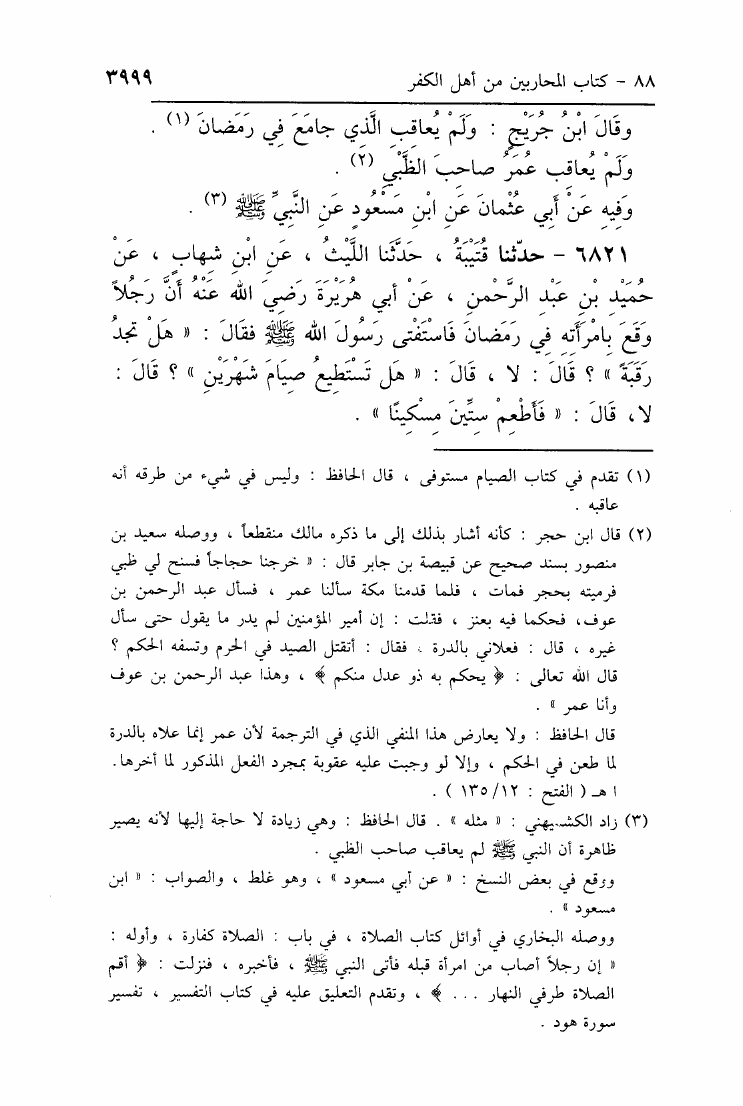 ٨٨ - كتاب المحاربين من أهل الكفر ٣٩٩٩
وقَالَ ابْنُ جُرَيْجٍ : وَلَمْ يُعاقِبِ الَّذِي جامَعَ فِي رَمَضانَ (١) .
وَلَمْ يُعاقِب عُمَرُ صاحِبَ الظَّبْيِ (٢) .
وَفِيهِ عَنْ أَبِي عُثْمانَ عَنِ ابْنِ مَسْعُودٍ عَنِ النَّبِيِّ ﷺ (٣) .
٦٨٢١ - حدّثنا قُتَيْبَةُ ، حَدَّثَنا اللَّيْثُ ، عَنِ ابْنِ شِهابٍ ، عَنْ
حُمَيْدِ بْنِ عَبْدِ الرَّحْمنِ ، عَنْ أبي هُرَيْرَةَ رَضِيَ اللّٰه عَنْهُ أنَّ رَجُلاً
وَقَعَ بِامْرَأَتِه فِي رَمَضانَ فَاسْتَفْتى رَسُولَ اللّٰه ﷺ فقالَ : « هَلْ تجدُ
رَقَبَةً » ؟ قَالَ : لا ، قَالَ : « هَل تَسْتَطِيعُ صِيَامَ شَهْرَيْنِ » ؟ قالَ :
لا، قَالَ : « فَأَطْعِمْ سِتِّينَ مِسْكِينًا » .
(١) تقدم في كتاب الصيام مستوفى ، قال الحافظ : وليس في شيء من طرقه أنه
عاقبه .
(٢) قال ابن حجر : كأنه أشار بذلك إلى ما ذكره مالك منقطعاً ، ووصله سعيد بن
منصور بسند صحيح عن قبيصة بن جابر قال : « خرجنا حجاجاً فسنح لي ظبي
فرميته بحجر فمات ، فلما قدمنا مكة سألنا عمر ، فسأل عبد الرحمن بن
عوف، فحكما فيه بعنز ، فقلت : إن أمير المؤمنين لم يدر ما يقول حتى سأل
غيره ، قال : فعلاني بالدرة ، فقال : أتقتل الصيد في الحرم وتسفه الحكم ؟
قال اللّٰه تعالى : ﴿ يحكم به ذو عدل منكم ﴾ ، وهذا عبد الرحمن بن عوف
وأنا عمر » .
قال الحافظ : ولا يعارض هذا المنفي الذي في الترجمة لأن عمر إنما علاه بالدرة
لما طعن في الحكم ، وإلا لو وجبت عليه عقوبة بمجرد الفعل المذكور لما أخرها.
ا هـ ( الفتح : ١٣٥/١٢ ) .
(٣) زاد الكشميهني : « مثله » . قال الحافظ : وهي زيادة لا حاجة إليها لأنه يصير
ظاهرة أن النبي ﷺ لم يعاقب صاحب الظبي .
ووقع في بعض النسخ : « عن أبي مسعود » ، وهو غلط ، والصواب : « ابن
مسعود » .
ووصله البخاري في أوائل كتاب الصلاة ، في باب : الصلاة كفارة ، وأوله :
« إن رجلاً أصاب من امرأة قبله فأتى النبي ﷺ ، فأخبره ، فنزلت : ﴿ أقم
الصلاة طرفي النهار ... ﴾ ، وتقدم التعليق عليه في كتاب التفسير ، تفسير
سورة هود .